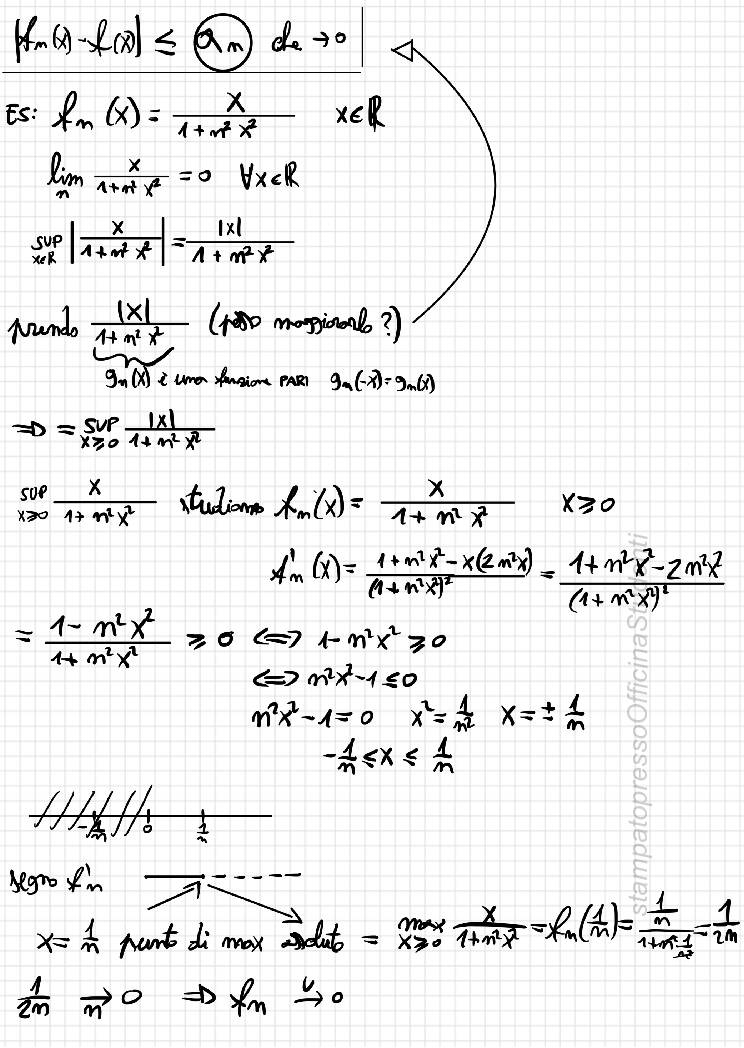 |fn(x) - f(x)| ≤ an che → 0
ES: fn(x) = x / (1 + n² x²) x ∈ ℝ
lim n x / (1 + n² x²) = 0 ∀x ∈ ℝ
SUP x∈ℝ |x / (1 + n² x²)| = |x| / (1 + n² x²)
prendo |x| / (1 + n² x²) (posso maggiorarlo ?)
gn(x) è una funzione PARI gn(-x) = gn(x)
⇒ = SUP x ≥ 0 |x| / (1 + n² x²)
SUP x ≥ 0 x / (1 + n² x²) studiamo fn(x) = x / (1 + n² x²) x ≥ 0
f'n(x) = (1 + n² x² - x(2 n² x)) / (1 + n² x²)² = (1 + n² x² - 2 n² x²) / (1 + n² x²)²
= (1 - n² x²) / (1 + n² x²) ≥ 0 ⇔ 1 - n² x² ≥ 0
⇔ n² x² - 1 ≤ 0
n² x² - 1 = 0 x² = 1/n² x = ± 1/n
-1/n ≤ x ≤ 1/n
-1/n 0 1/n
segno f'n
x = 1/n punto di max assoluto = max x ≥ 0 x / (1 + n² x²) = fn(1/n) = (1/n) / (1 + n² · 1/n²) = 1/2n
1/2n → n 0 ⇒ fn →U 0
stampatopressoOfficinaStudenti